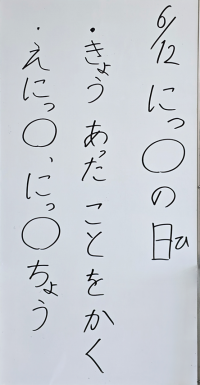 6/12 にっ〇の日ひ
・きょう あった ことをかく
・えにっ〇、にっ〇ちょう